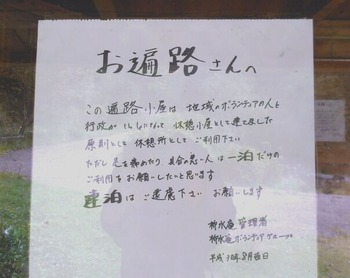 お遍路さんへ
この遍路小屋は 地域のボランティアの人と
行政が いっしょになって 休憩小屋として建てました
原則として 休憩所として ご利用下さい
ただし 足を痛めたり 具合の悪い人は 一泊だけの
ご利用をお願いしたいと思います
連泊は ご遠慮下さい お願いします
柳水庵 管理者
柳水庵ボランティアグループ
平成 年8月 日